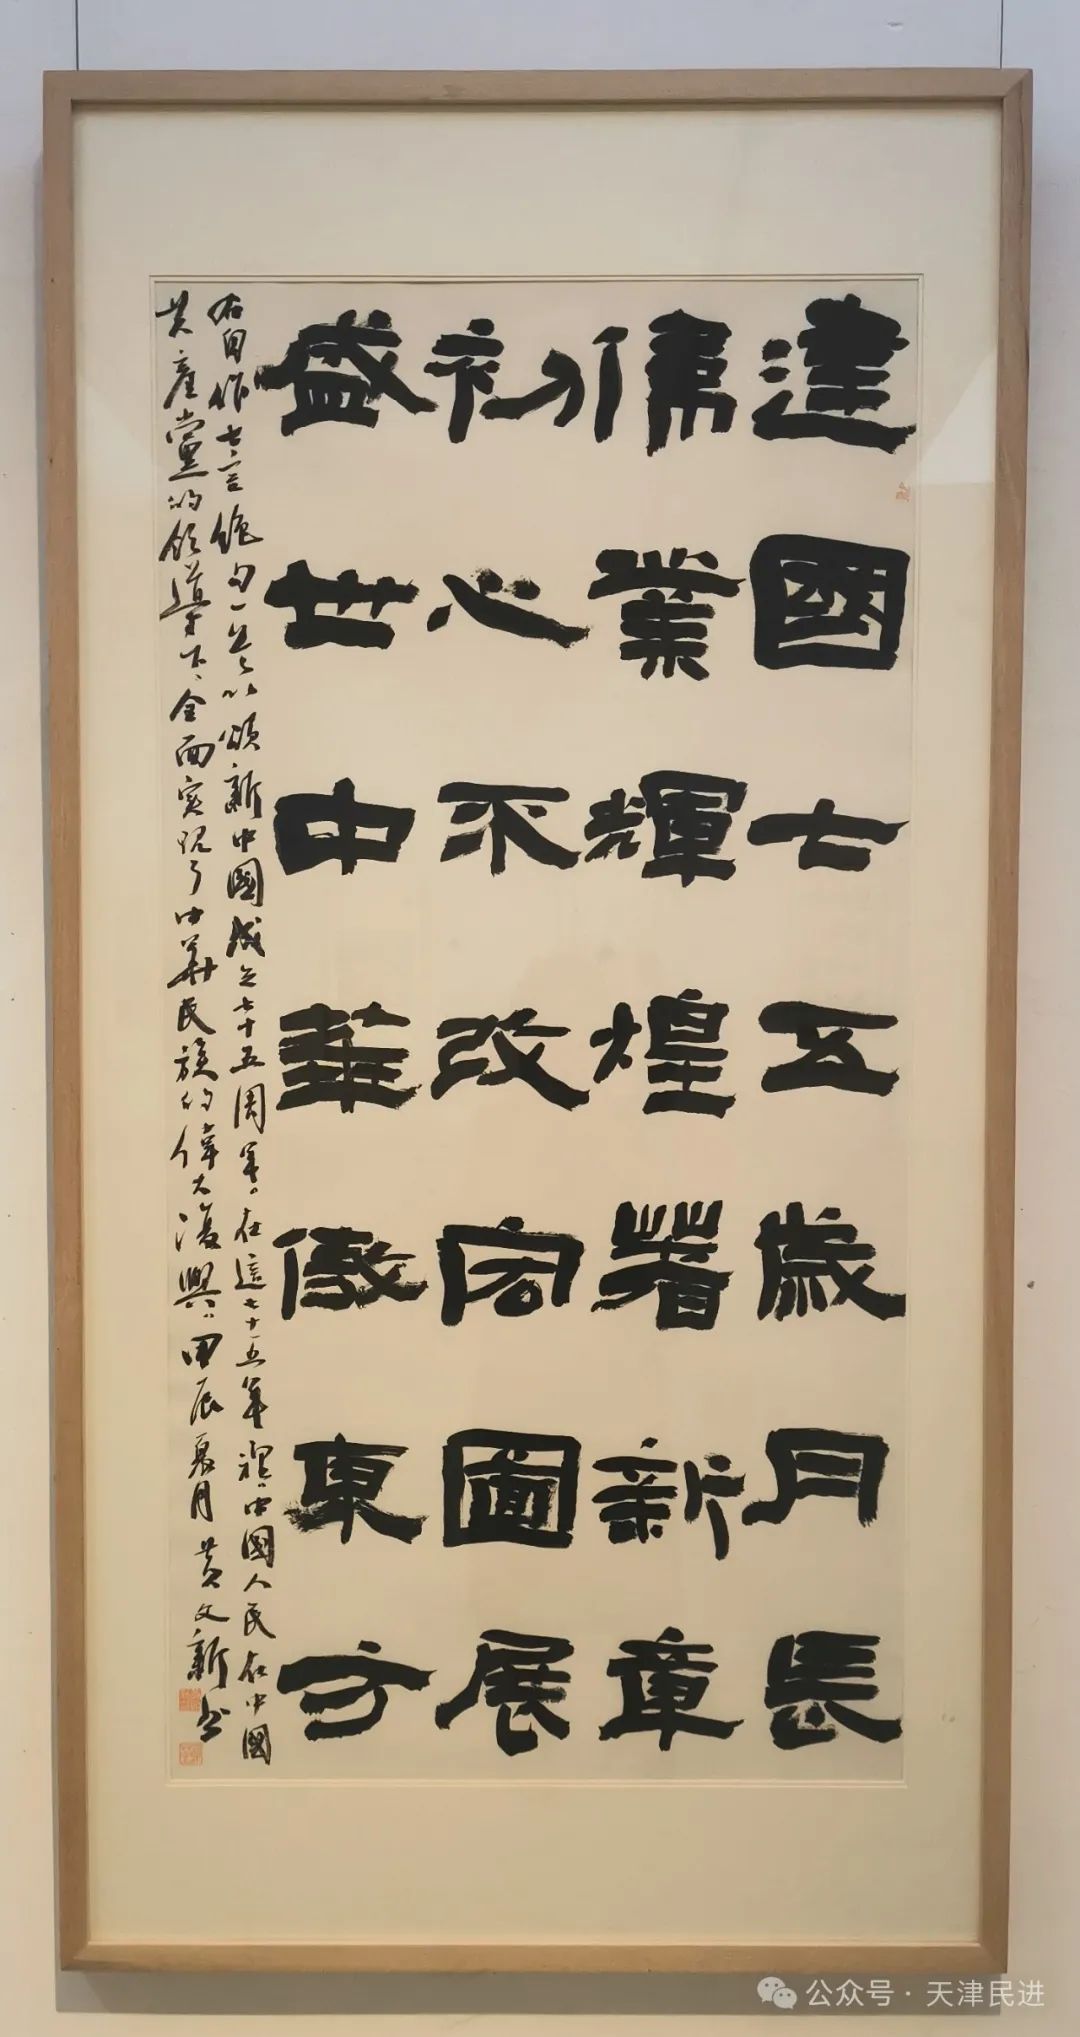 建國七五歲月長
偉業輝煌著新章
初心不改宏圖展
盛世中華傲東方
右自作七言絶句一首以頌新中國成立七十五周年。在這七十五年裡，中國人民在中國
共產黨的領導下，全面实现了中華民族的偉大復興。甲辰夏月黄文新书
公众号·天津民进